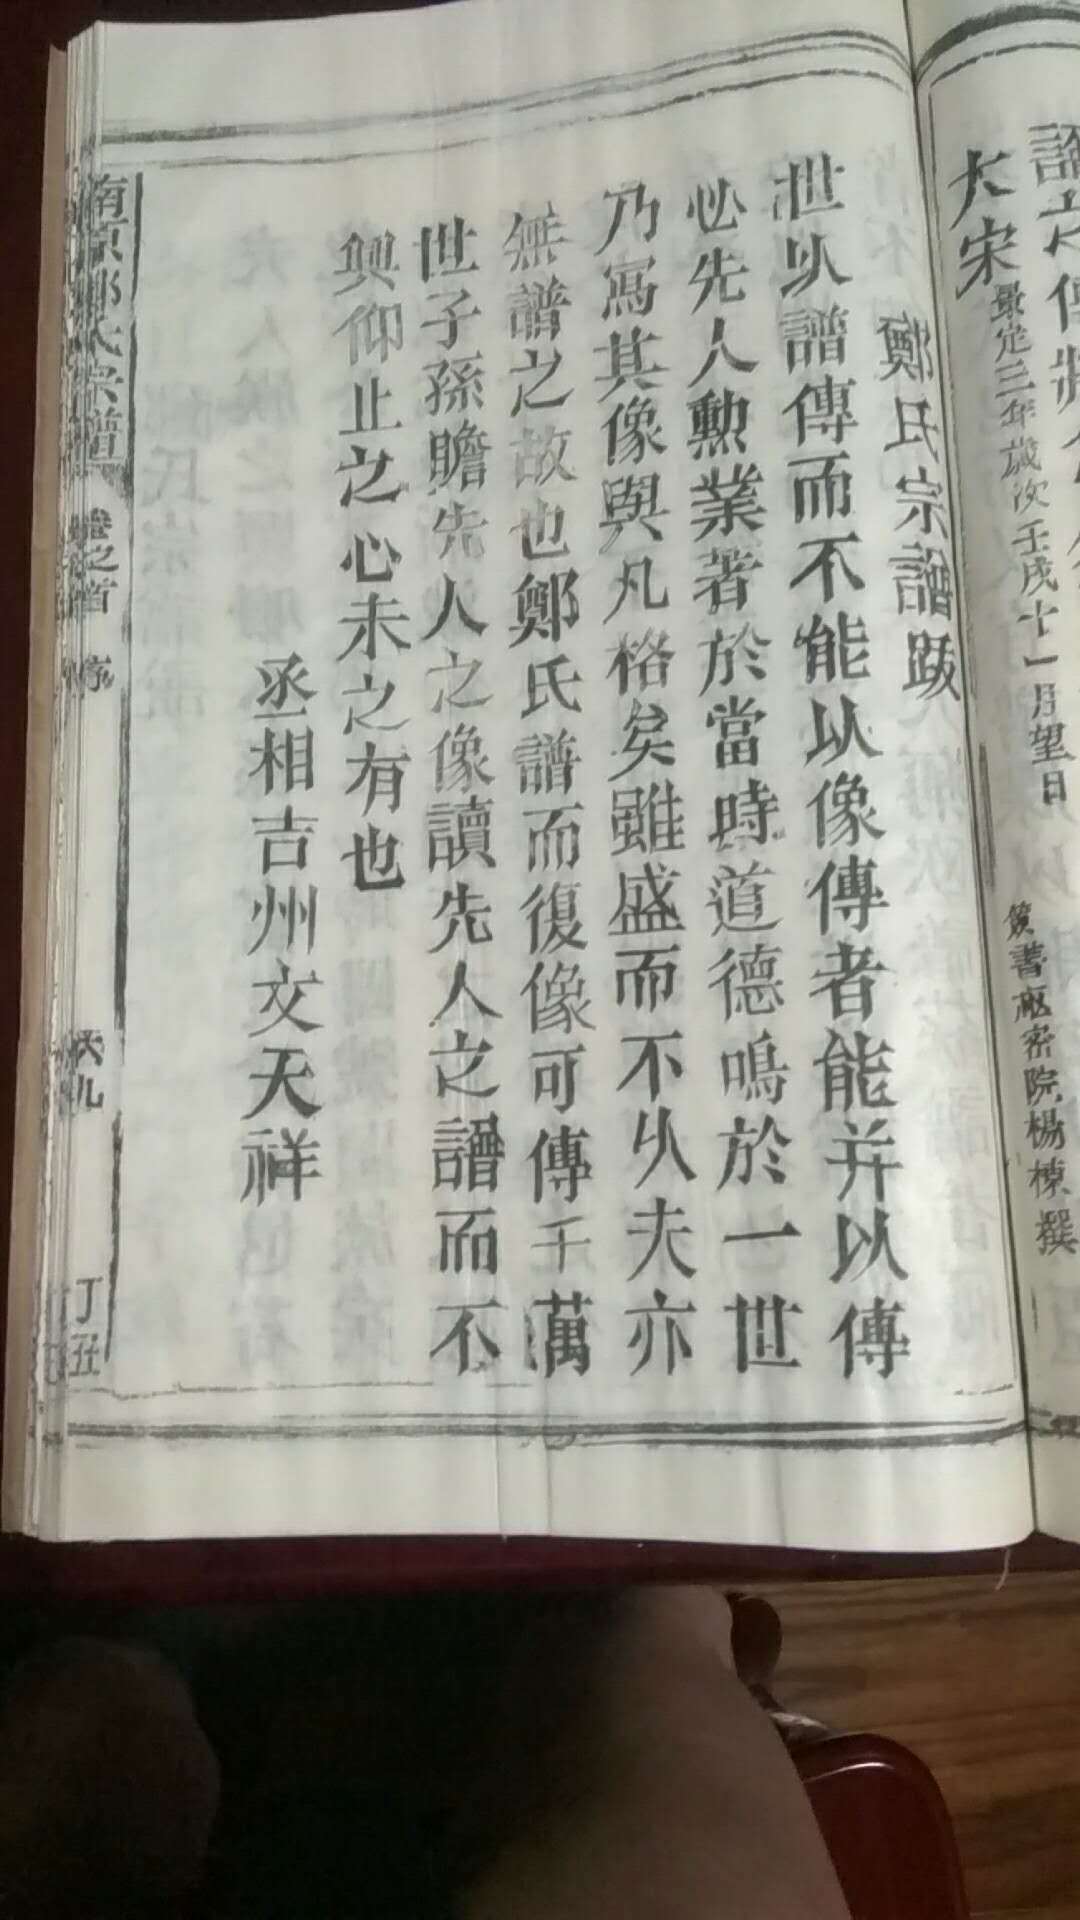 大宋景定三年歲次壬戌十一月望日 簽書樞密院楊棟撰
鄭氏宗譜跋
世以譜傳而不能以像傳者能并以傳
必先人勲業著於當時道德鳴於一世
乃寫其像與凡格矣雖盛而不乆夫亦
無譜之故也鄭氏譜而復像可傳千萬
世子孫瞻先人之像讀先人之譜而不
興仰止之心未之有也
丞相吉州文天祥
鄭氏宗譜 卷之首 序 六九 丁丑